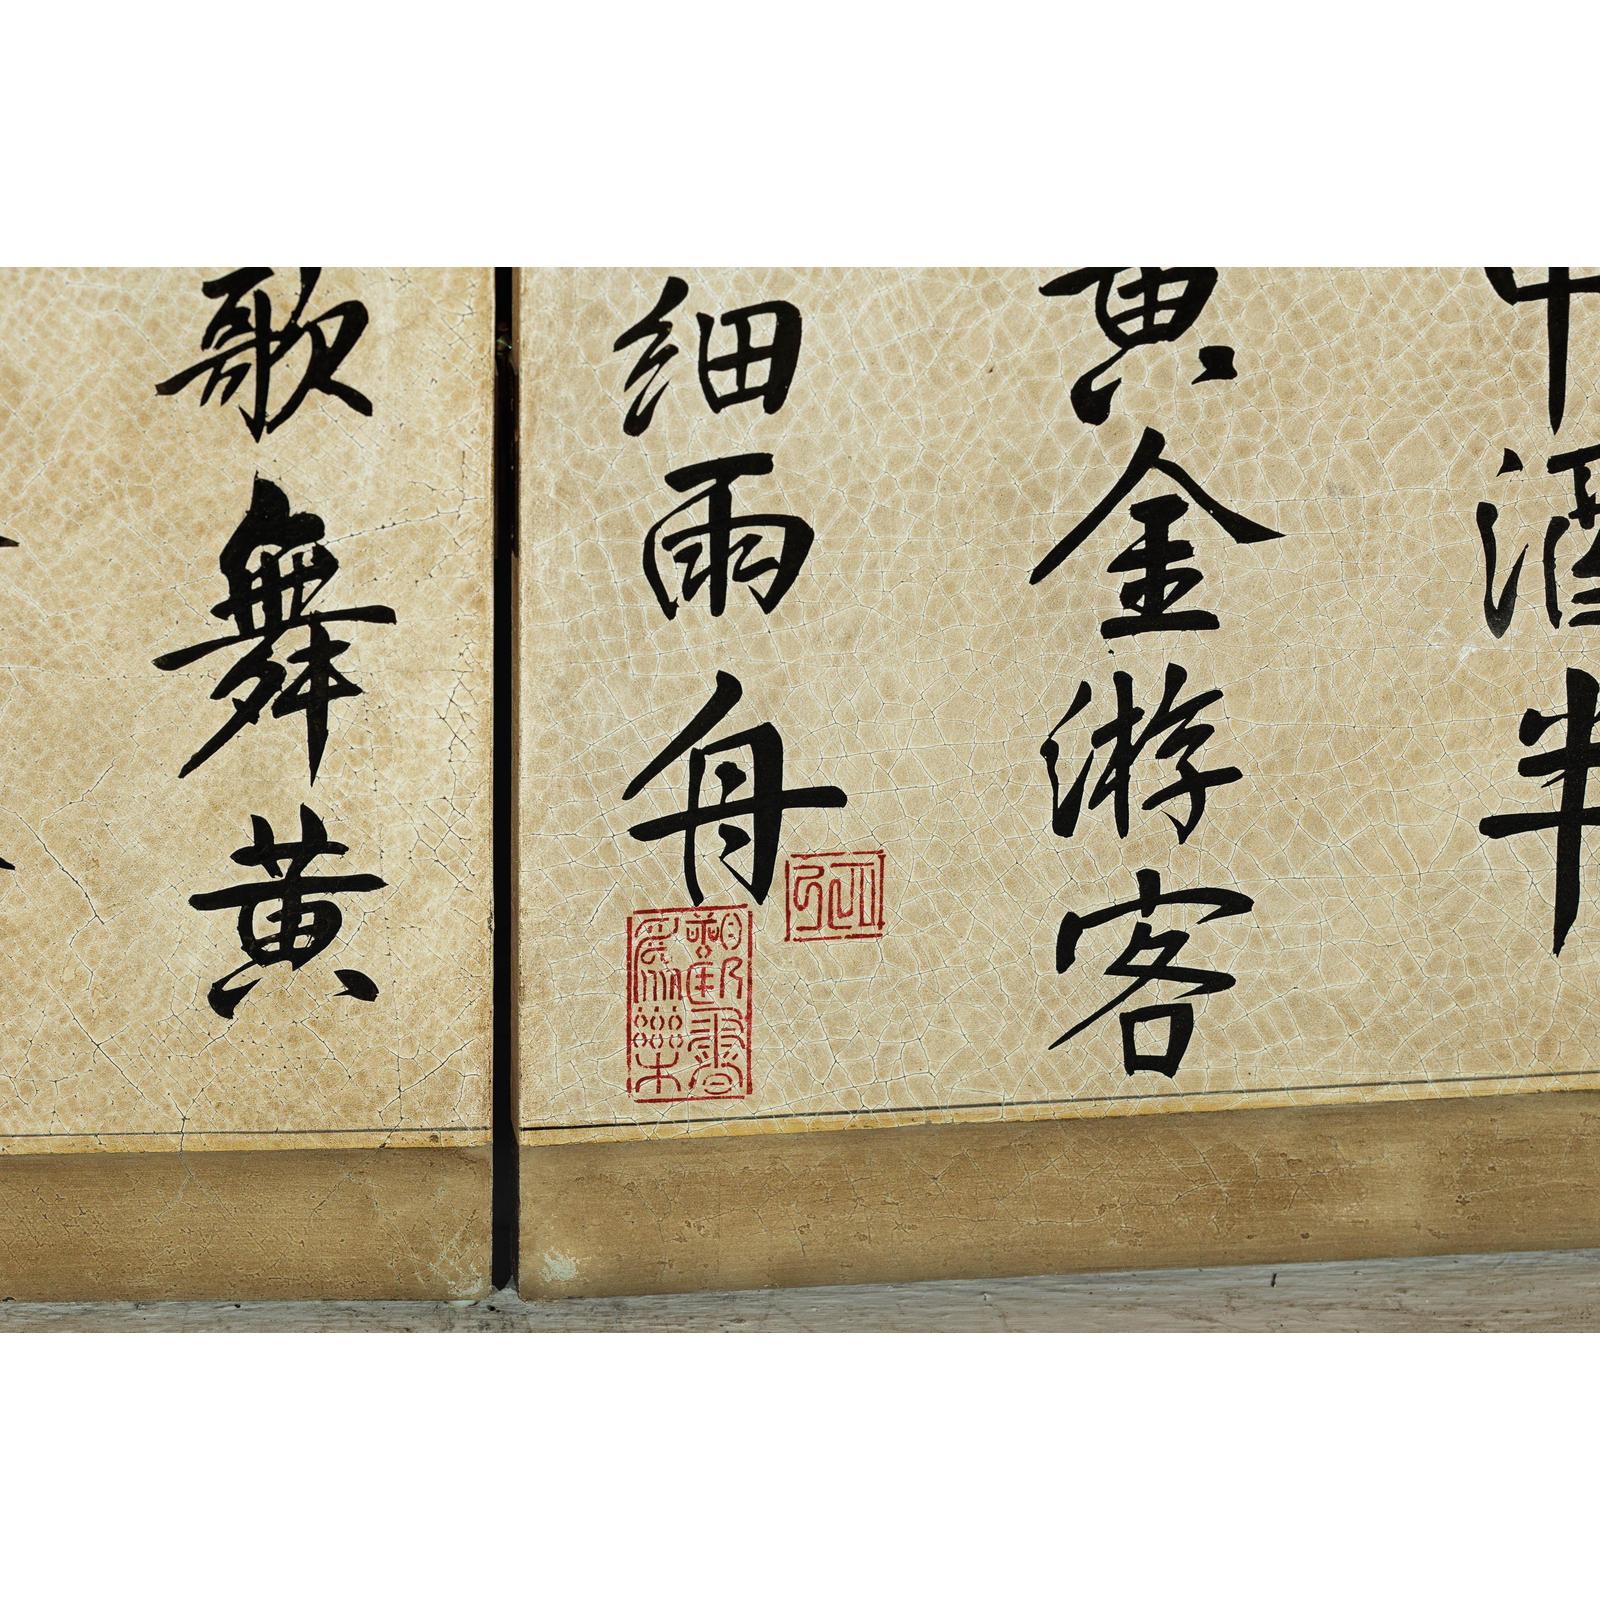 中酒半
黄金游客
细雨舟
歌舞黄